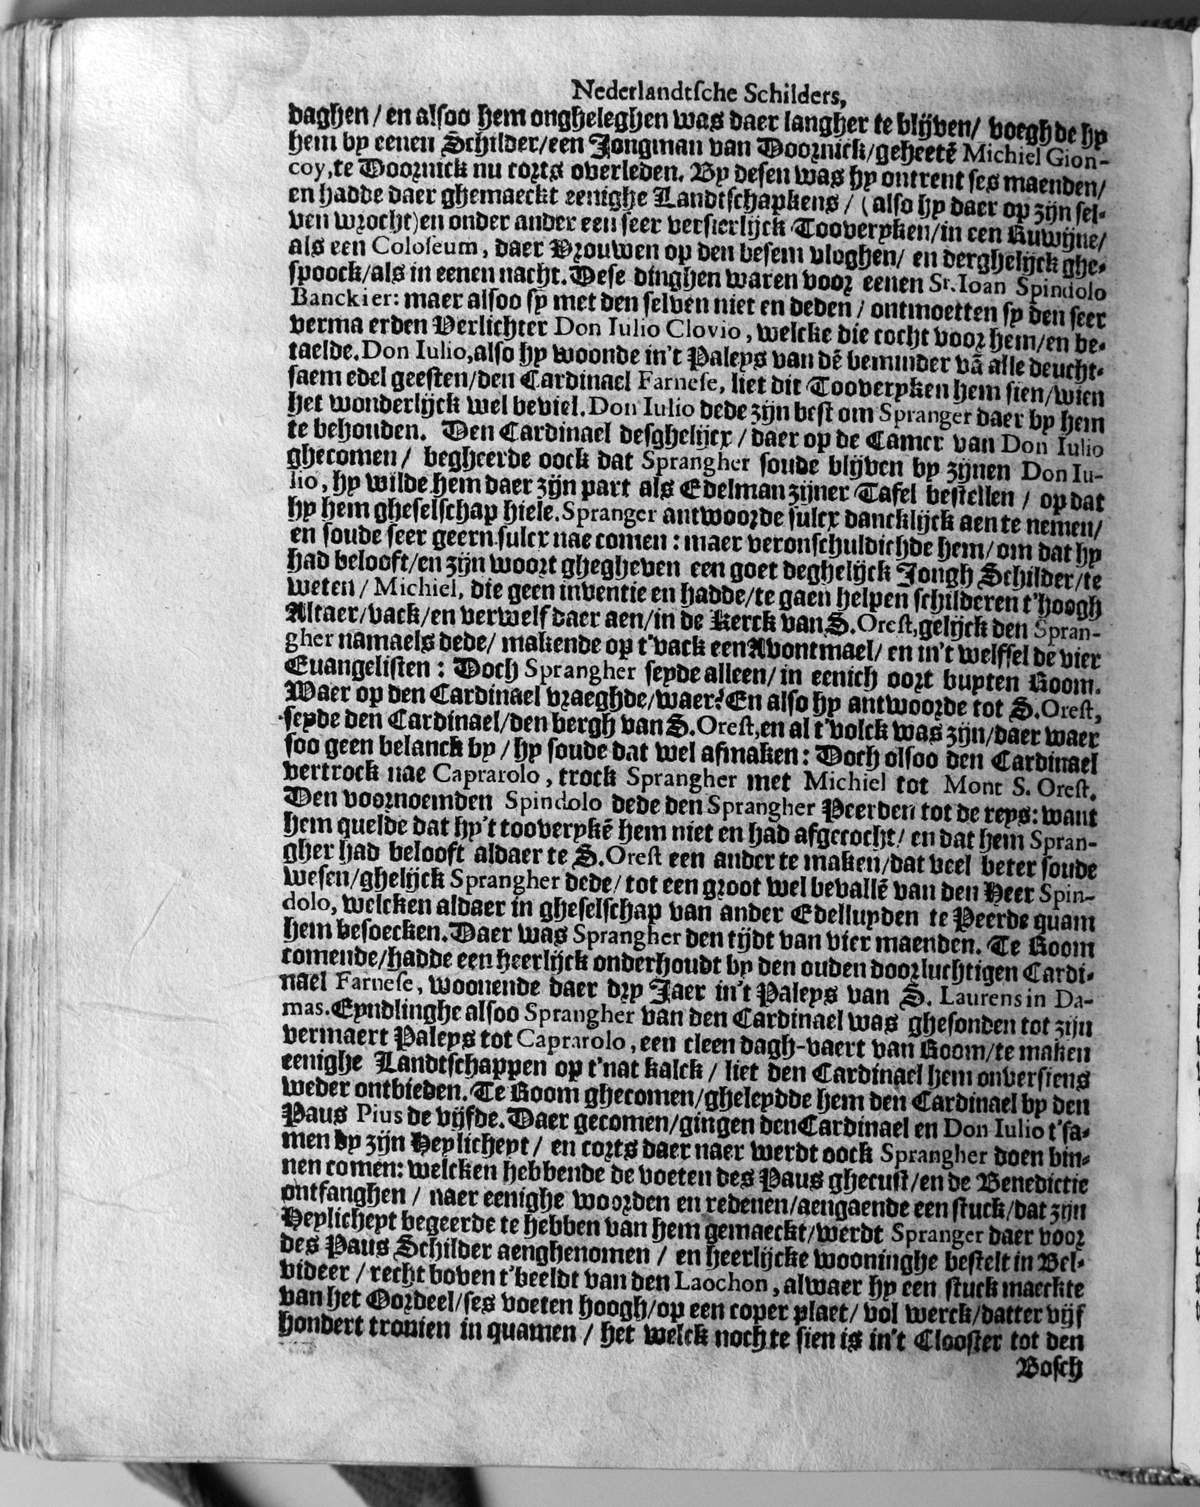 Nederlandtſche Schilders,
daghen / en alſoo hem ongheleghen was daer langher te blijven / voeghde hy
hem by eenen Schilder / een Jongman van Doornick / geheetẽ Michiel Gion-
coy, te Doornick nu corts overleden. By deſen was hy ontrent ſes maenden /
en hadde daer ghemaeckt eenighe Landtſchapkens / (alſo hy daer op zijn ſel-
ven wrocht) en onder ander een ſeer verſierlijck Tooverykẽn / in een Ruwijne /
als een Coloſeum, daer Vrouwen op den beſem vloghen / en derghelijck ghe-
ſpoock / als in eenen nacht. Deſe dinghen waren voor eenen Sr. Ioan Spindolo
Banckier: maer alſoo ſy met den ſelven niet en deden / ontmoetten ſy den ſeer
verma erden Verlichter Don Iulio Clovio, welcke die cocht voor hem / en be-
taelde. Don Iulio, alſo hy woonde in't Paleys van dẽ beminder vã alle deucht-
ſaem edel geeſten / den Cardinael Farneſe, liet dit Tooveryken hem ſien / wien
het wonderlijck wel beviel. Don Iulio dede zijn beſt om Spranger daer by hem
te behouden. Den Cardinael deſghelijcx / daer op de Camer van Don Iulio
ghecomen / begheerde oock dat Sprangher ſoude blijven by zijnen Don Iu-
lio, hy wilde hem daer zijn part als Edelman zijner Tafel beſtellen / op dat
hy hem gheſelſchap hiele. Spranger antwoorde ſulcx dancklijck aen te nemen /
en ſoude ſeer geern ſulcx nae comen: maer veronſchuldichde hem / om dat hy
had belooft / en zijn woort ghegheven een goet deghelijck Jongh Schilder / te
weten / Michiel, die geen inventie en hadde / te gaen helpen ſchilderen t'hoogh
Altaer / vack / en verwelf daer aen / in de Kerck van S. Oreſt, gelijck den Spran-
gher namaels dede / makende op t'vack een Avontmael / en in't welffſel de vier
Euangeliſten: Doch Sprangher ſeyde alleen / in eenich oort buyten Room.
Waer op den Cardinael vraeghde / waer? En alſo hy antwoorde tot S. Oreſt,
ſeyde den Cardinael / den bergh van S. Oreſt, en al t'volck was zijn / daer waer
ſoo geen belanck by / hy ſoude dat wel afmaken: Doch olſoo den Cardinael
vertrock nae Caprarolo, trock Sprangher met Michiel tot Mont S. Oreſt.
Den voornoemden Spindolo dede den Sprangher Peerden tot de reys: want
hem quelde dat hy't tooverykẽ hem niet en had afgecocht / en dat hem Spran-
gher had belooft aldaer te S. Oreſt een ander te maken / dat veel beter ſoude
weſen / ghelijck Sprangher dede / tot een groot wel bevallẽ van den Heer Spin-
dolo, welcken aldaer in gheſelſchap van ander Edelluyden te Peerde quam
hem beſoecken. Daer was Sprangher den tijdt van vier maenden. Te Room
comende / hadde een heerlijck onderhoudt by den ouden doorluchtigen Cardi-
nael Farneſe, woonende daer dry Jaer in't Paleys van S. Laurens in Da-
mas. Eyndlinghe alſoo Sprangher van den Cardinael was gheſonden tot zijn
vermaert Paleys tot Caprarolo, een cleen dagh-vaert van Room / te maken
eenighe Landtſchappen op t'nat kalck / liet den Cardinael hem onverſiens
weder ontbieden. Te Room ghecomen / gheleydde hem den Cardinael by den
Paus Pius de vijfde. Daer gecomen / gingen den Cardinael en Don Iulio t'ſa-
men by zijn Heylicheyt / en corts daer naer werdt oock Sprangher doen bin-
nen comen: welcken hebbende de voeten des Paus ghecuſt / en de Benedictie
ontfanghen / naer eenighe woorden en redenen / aengaende een ſtuck / dat zijn
Heylicheyt begeerde te hebben van hem gemaeckt / werdt Spranger daer voor
des Paus Schilder aenghenomen / en heerlijcke wooninghe beſtelt in Bel-
videer / recht boven t'beeldt van den Laochon, alwaer hy een ſtuck maeckte
van het Oordeel / ſes voeten hoogh / op een coper plaet / vol werck / datter vijf
hondert tronien in quamen / het welck noch te ſien is in't Clooſter tot den
Boſch